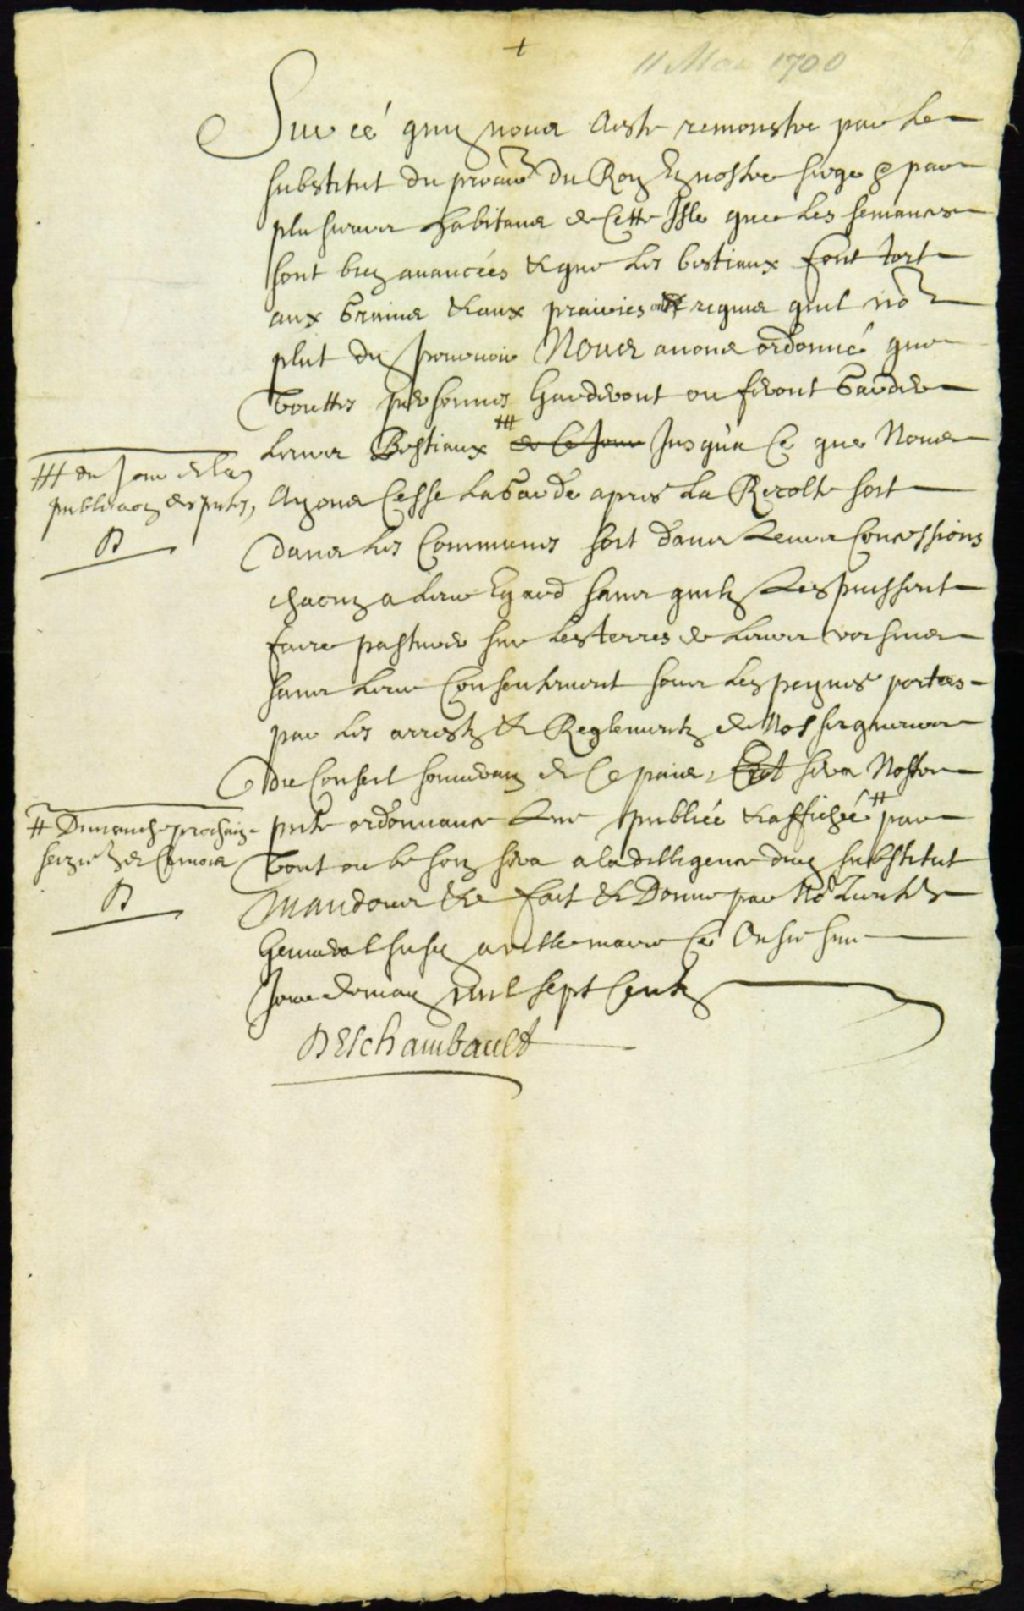 +
11 Mai 1700
Sur cé quy nous A esté remonstré par Le
substitut du procur du Roy En nostre siege & par
plusieurs habitans de Cette Isle que Les semances
sont bien avancées & que Les bestiaux font tort
aux Grains & aux prairies requer quil no
plut du pourvoir Nous avons ordonné que
Touttes personnes Garderont ou feront Garder
Leurs Bestiaux ⧻ de Ce Jour Jusqua Ce que Nous
Ayons Cessé La Garde apres La Recolte soit
Dans Les Communes soit dans Leurs Concessions
chacun a Leur Egard sans quils Les puissent
faire pasturer sur Les terres de Leurs voisins
sans Leur Consentement sous Les peynes portées
par Les arrests & Reglements de Nosseigneurs
du Conseil souverain de Ce pais, Et sera Nostre
pnte ordonnance Lue publiée & affichée # par
Tout ou besoin sera a la dilligence dud substitut
Mandons &c fait & Donné par No Lieut
General susd a villemarie Ce Onziesme
Jour de may mil sept Cents
DEschambault
⧻ du Jour de la
publicaon des pntes,
D
# Dimanche prochain
seize de Ce mois
D